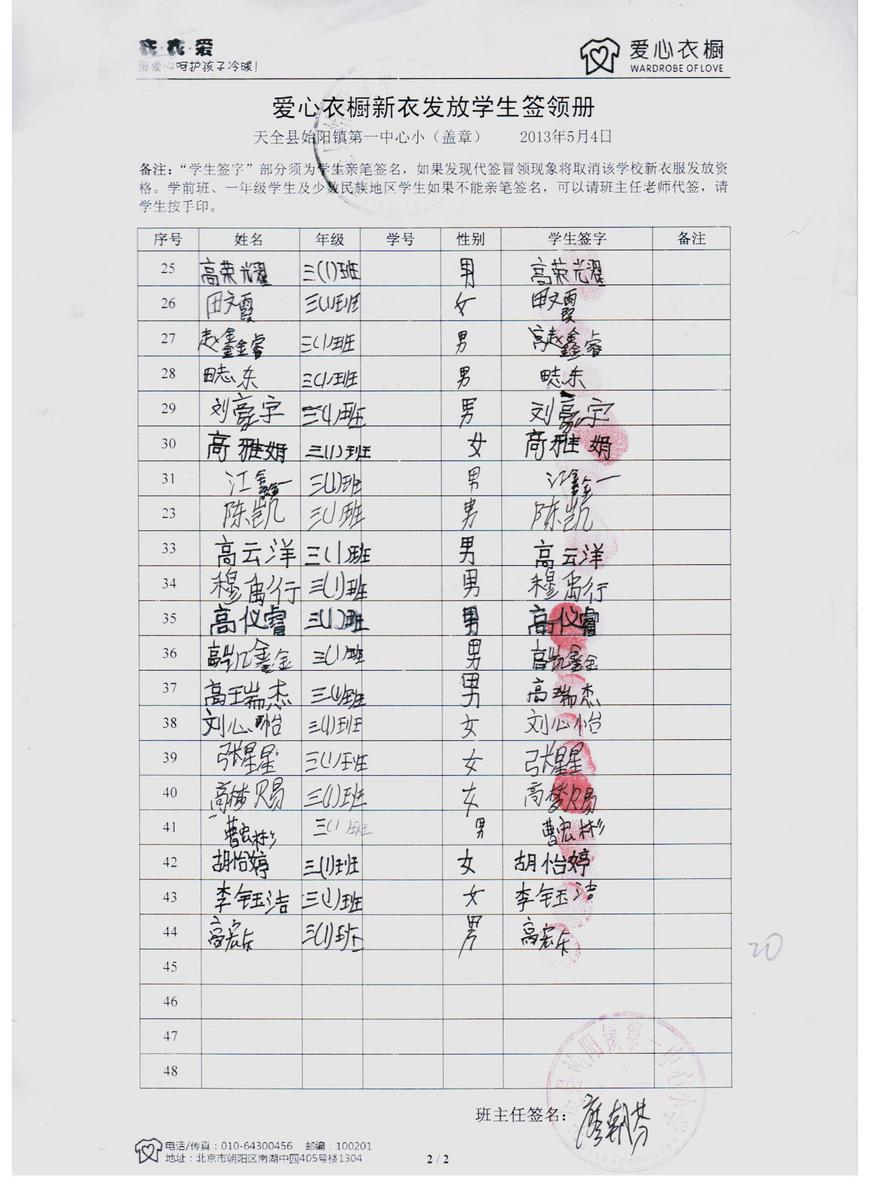 衣·衣·爱
用爱心呵护孩子冷暖！
爱心衣橱
WARDROBE OF LOVE
爱心衣橱新衣发放学生签领册
天全县始阳镇第一中心小（盖章） 2013年5月4日
备注：“学生签字”部分须为学生亲笔签名，如果发现代签冒领现象将取消该学校新衣服发放资
格。学前班、一年级学生及少数民族地区学生如果不能亲笔签名，可以请班主任老师代签，请
学生按手印。
序号 姓名 年级 学号 性别 学生签字 备注
25 高荣光耀 三(1)班 男 高荣光耀
26 田文霞 三(1)班 女 田文霞
27 赵鑫睿 三(1)班 男 高赵鑫睿
28 田志东 三(1)班 男 田志东
29 刘豪宇 三(1)班 男 刘豪宇
30 高雅娟 三(1)班 女 高雅娟
31 江鑫一 三(1)班 男 江鑫一
23 陈凯 三(1)班 男 陈凯
33 高云洋 三(1)班 男 高云洋
34 穆禹行 三(1)班 男 穆禹行
35 高仪睿 三(1)班 男 高仪睿
36 高凯鑫金 三(1)班 男 高凯鑫金
37 高王瑞杰 三(1)班 男 高瑞杰
38 刘心怡 三(1)班 女 刘心怡
39 张煋星 三(1)班 女 张煋星
40 高梦赐 三(1)班 女 高梦赐
41 曹宏彬 三(1)班 男 曹宏彬
42 胡怡婷 三(1)班 女 胡怡婷
43 李钰洁 三(1)班 女 李钰洁
44 高宏乐 三(1)班 男 高宏乐
45
46
47
48
20
班主任签名：廖朝芬
电话/传真：010-64300456 邮编：100201
地址：北京市朝阳区南湖中园405号楼1304
2 / 2